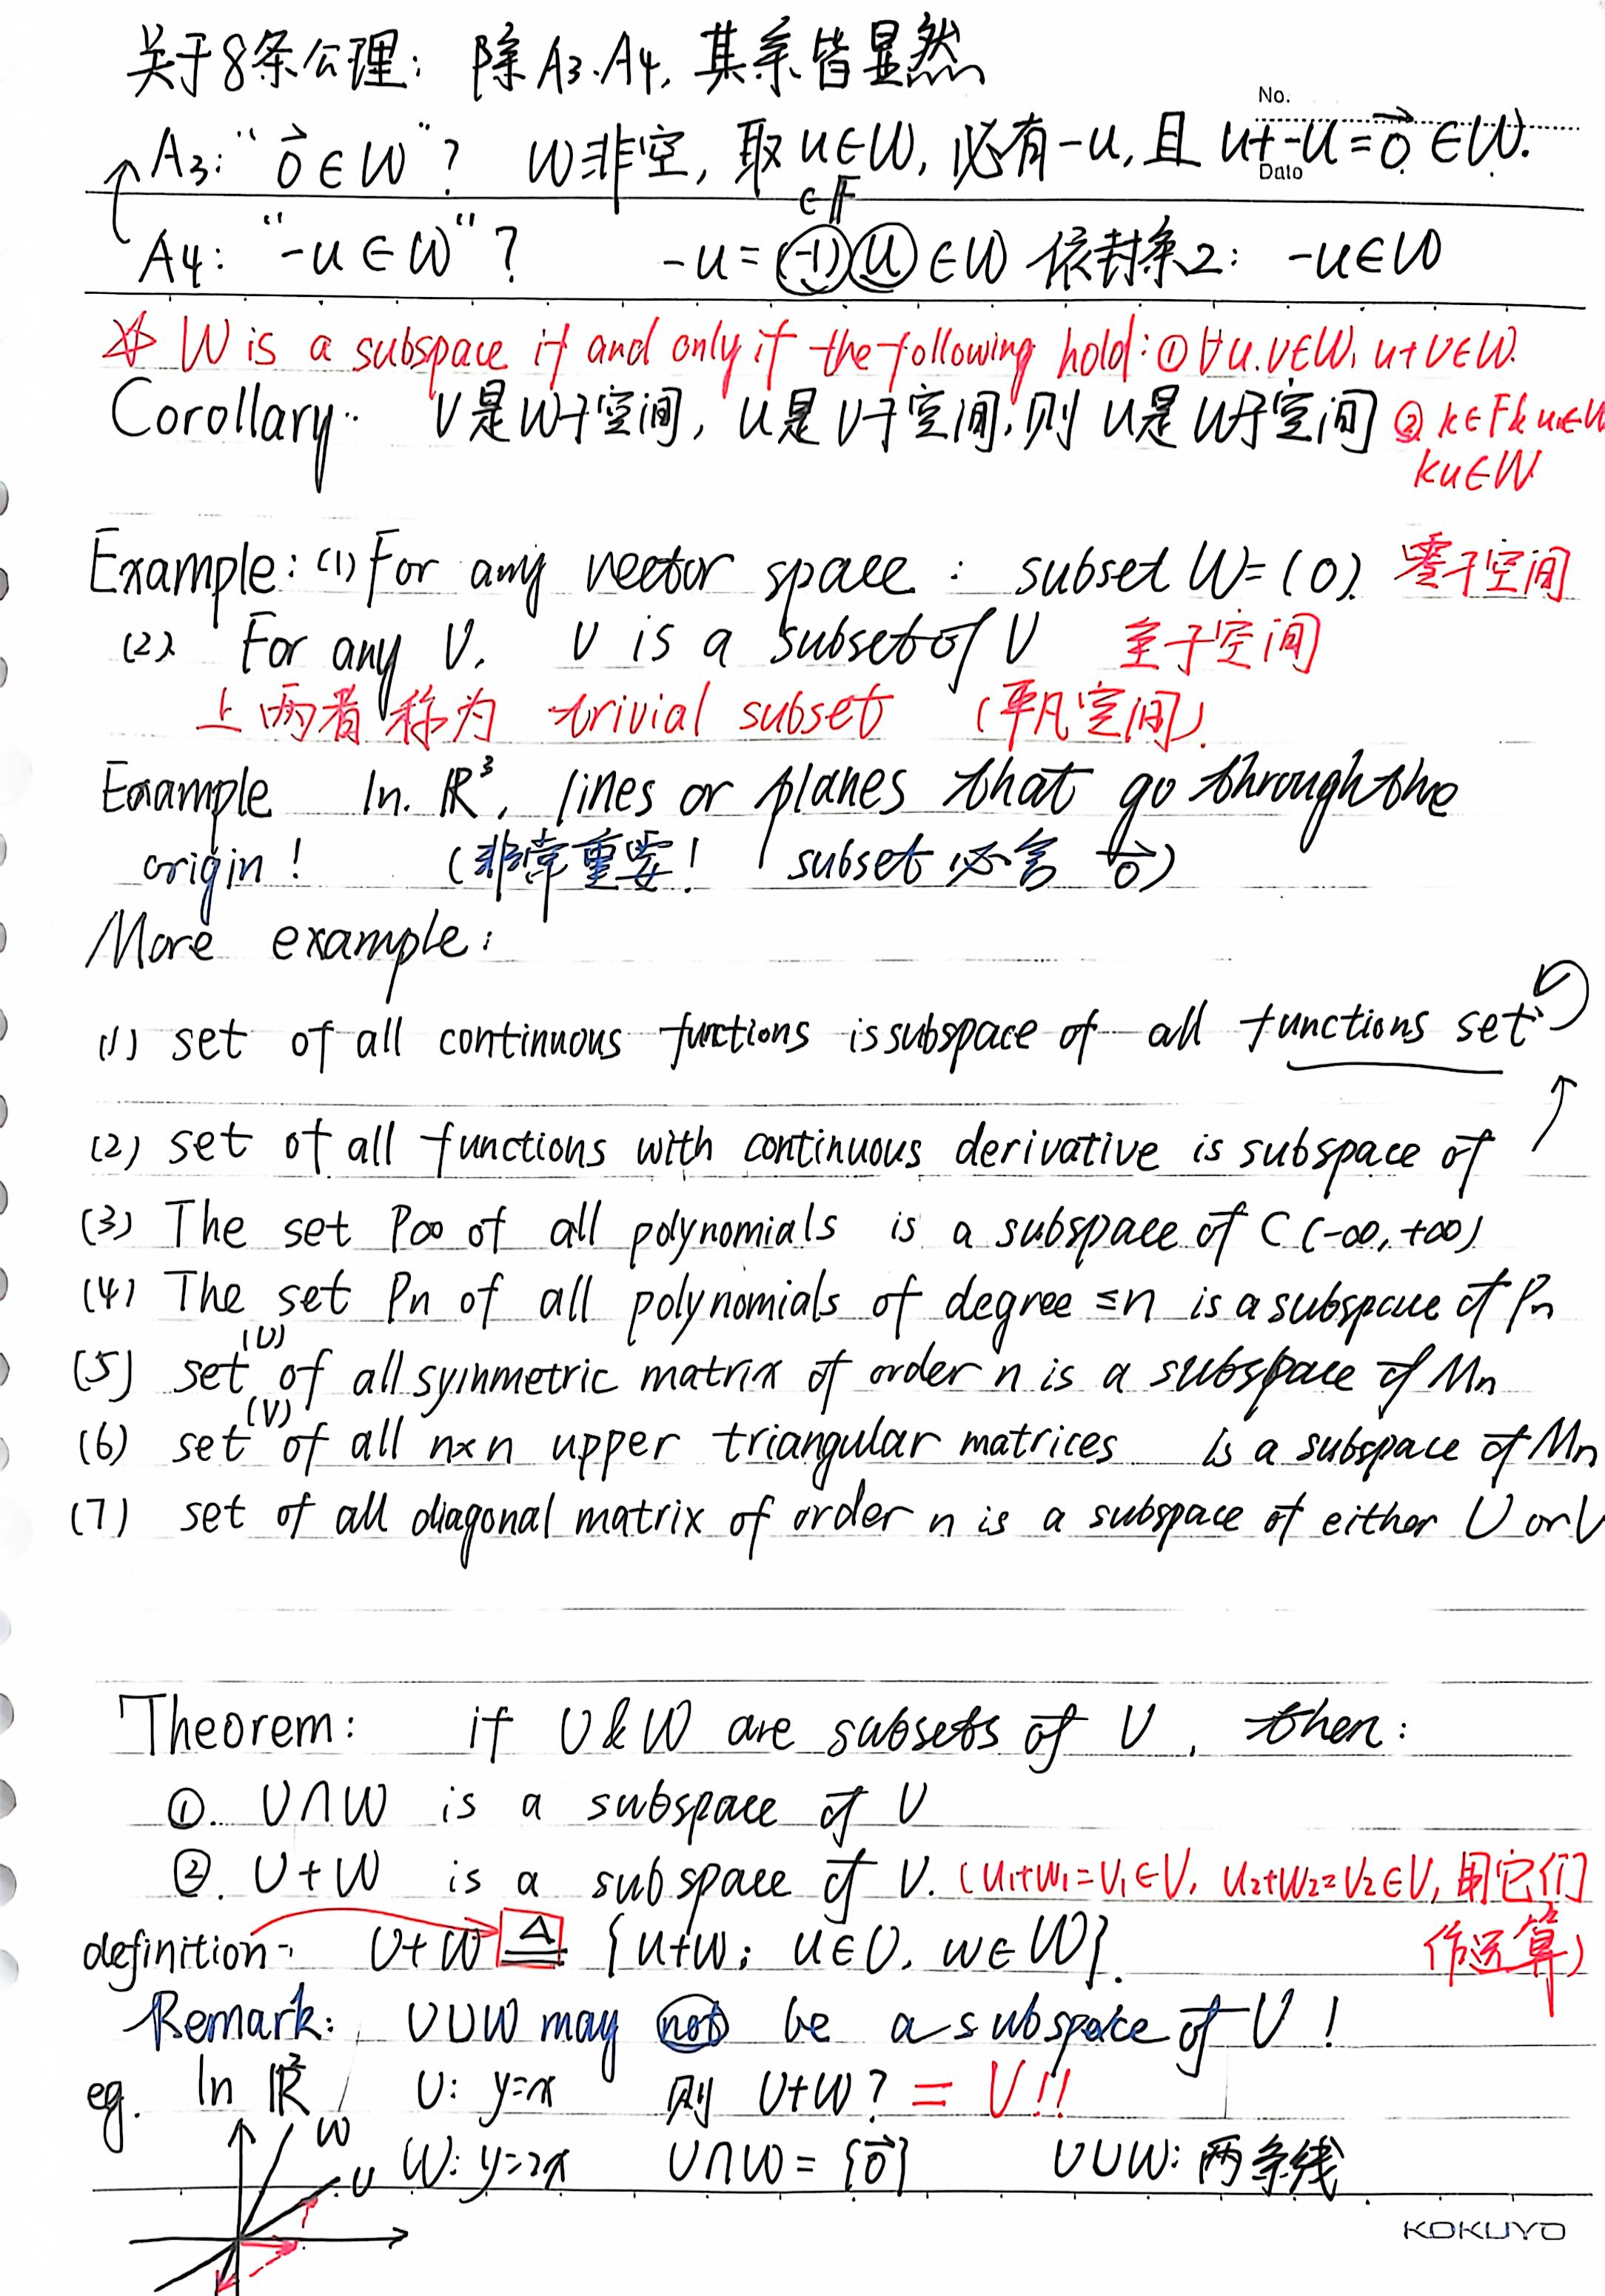 关于8条公理：除A3.A4，其余皆显然
No.
A3: “0⃗∈W”? W非空，取u∈W，必有-u，且 u+-u=0⃗∈W.
Date
∈F
A4: “-u∈W”? -u=(-1)(u)∈W 依封条2: -u∈W
W is a subspace if and only if the following hold: ① ∀u.v∈W, u+v∈W.
Corollary: V是W子空间, U是V子空间, 则 U是W子空间 ② k∈F & u∈W
ku∈W
Example: (1) For any vector space : subset W=(0). 零子空间
(2) For any V, V is a subset of V 全子空间
上两者称为 trivial subset (平凡空间).
Example In R³, lines or planes that go through the
origin! (非常重要! subset 必含 0⃗)
More example:
(1) set of all continuous functions is subspace of all functions set
(2) set of all functions with continuous derivative is subspace of ↑
(3) The set P∞ of all polynomials is a subspace of C(-∞,+∞)
(4) The set Pn of all polynomials of degree ≤n is a subspace of Pn
(U)
(5) set of all symmetric matrix of order n is a subspace of Mn
(V)
(6) set of all n×n upper triangular matrices is a subspace of Mn
(7) set of all diagonal matrix of order n is a subspace of either U or V
Theorem: if U & W are subsets of V, then:
①. U∩W is a subspace of V
②. U+W is a subspace of V. (u1+w1=v1∈V, u2+w2=v2∈V, 用它们
作运算)
definition: U+W ≜ {u+w; u∈U, w∈W}.
Remark: U∪W may not be a subspace of V!
eg. In R² U: y=x 则 U+W? = V!!
W
U W: y=2x U∩W={0⃗} U∪W: 两条线
KOKUYO